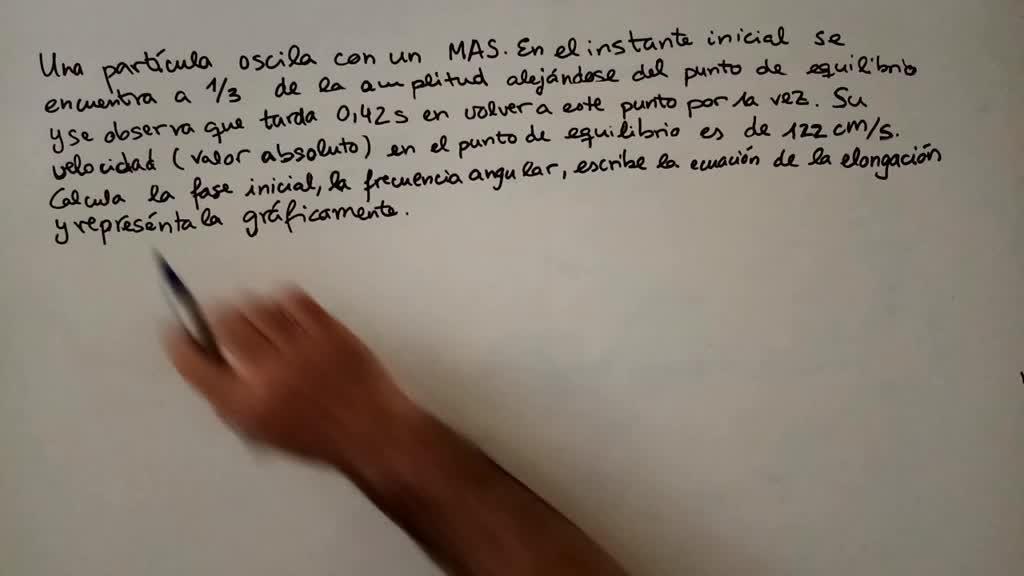 Una partícula oscila con un MAS. En el instante inicial se
encuentra a 1/3 de la amplitud alejándose del punto de equilibrio
y se observa que tarda 0,42 s en volver a este punto por 1a vez. Su
velocidad (valor absoluto) en el punto de equilibrio es de 122 cm/s.
Calcula la fase inicial, la frecuencia angular, escribe la ecuación de la elongación
y represéntala gráficamente.